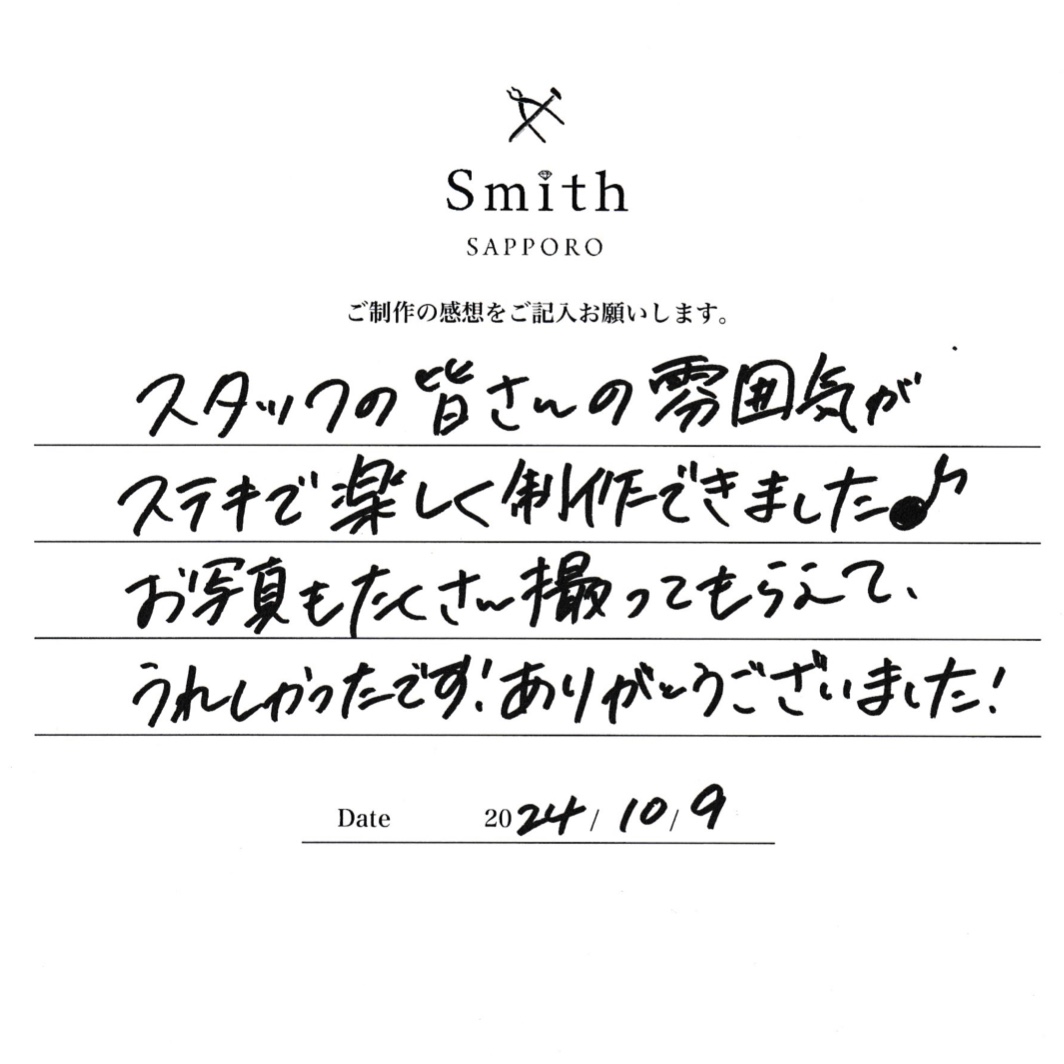 Smith
SAPPORO
ご制作の感想をご記入お願いします。
スタッフの皆さんの雰囲気が
ステキで楽しく制作できました♪
お写真もたくさん撮ってもらえて、
うれしかったです!ありがとうございました!
Date 2024/10/9